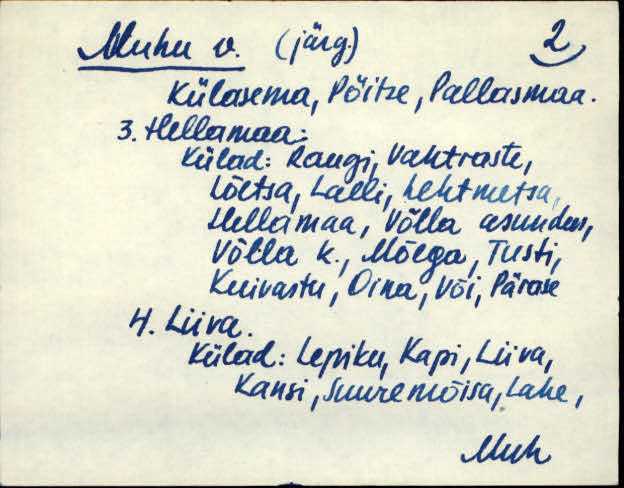 Muhu v. (järg.) 2
Külasema, Pöitse, Pallasmaa.
3. Hellamaa:
Külad: Raugi, Vahtraste,
Lõetsa, Lalli, Lehtmetsa,
Hellamaa, Võlla asundus,
Võlla k., Mõega, Tusti,
Kuivastu, Oina, Või, Pärase
4. Liiva.
Külad: Lepiku, Kapi, Liiva,
Kansi, Suuremõisa, Lahe,
Muh